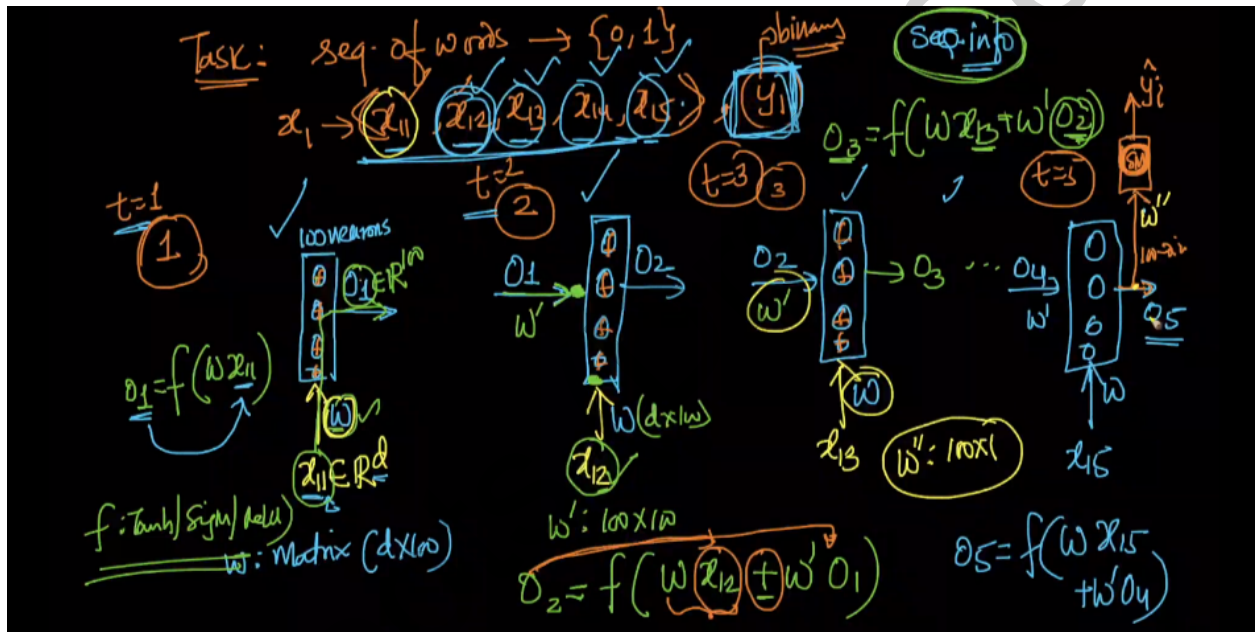 Task: seq. of words → {0,1}
binary
seq-info
x₁ → ⟨x₁₁, x₁₂, x₁₃, x₁₄, x₁₅⟩, y₁
O₃ = f(Wx₁₃ + W'O₂)
ŷᵢ
SM
W''
t=1
1
t=2
2
t=3
3
t=5
100 neurons
O₁ ∈ R¹⁰⁰
O1
W'
O2
O2
W'
O₃ ...
O4
W'
O5
O₁ = f(Wx₁₁)
W
W(dx100)
W
W
x₁₁ ∈ Rᵈ
x₁₂
x₁₃
W'': 100x1
x₁₅
f: Tanh/Sigm/Relu)
W: Matrix (dx100)
W': 100x100
O₂ = f(W x₁₂ + W' O₁)
O5 = f(W x₁₅
+W'O₄)